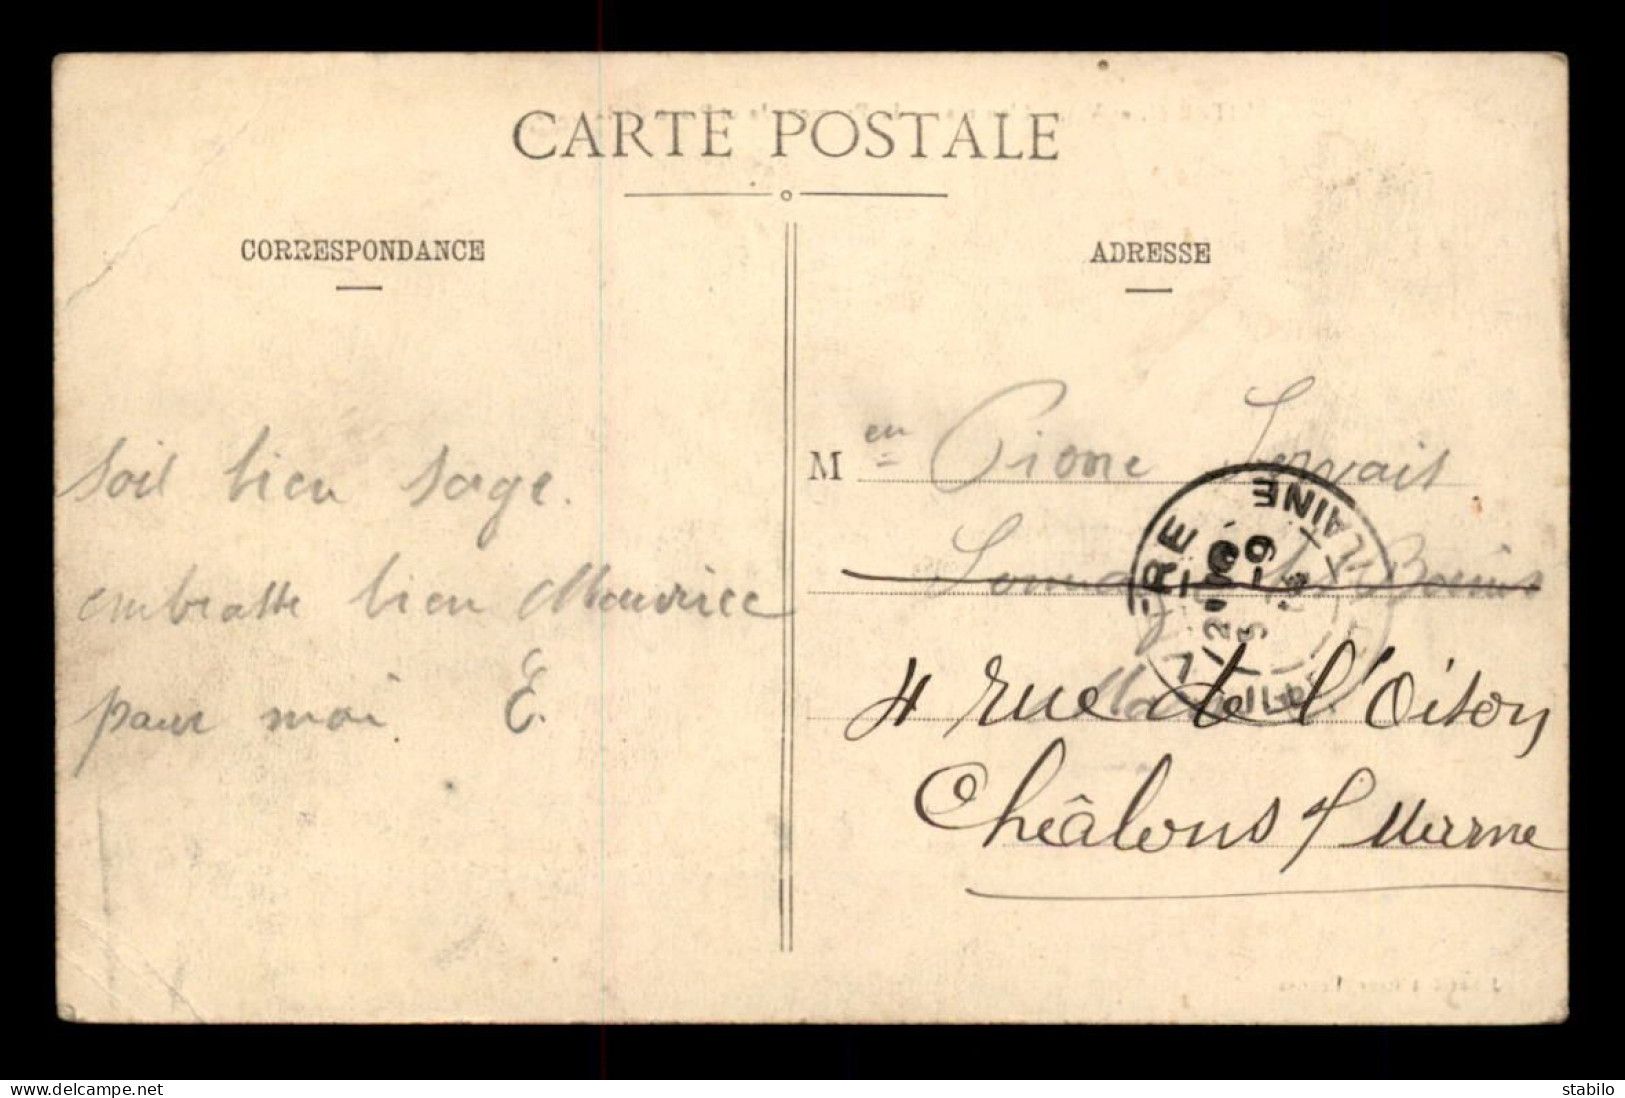 CARTE POSTALE
CORRESPONDANCE
ADRESSE
Soit bien sage.
embrasse bien Maurice
pour moi E.
M en Pionne Servais
les Bains
4 rue de l'Oison
Châlons s/ Marne
VITRÉ
ILLE
VILAINE
delcampe.net
stabilo